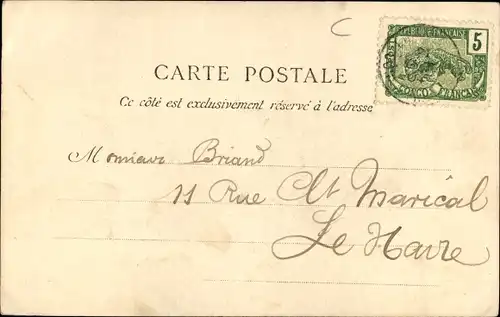 C
5
REPUBLIQUE FRANCAISE
CONGO FRANCAIS
CARTE POSTALE
Ce côté est exclusivement réservé à l'adresse
Monsieur Briand
11 Rue Clt Marical
Le Havre